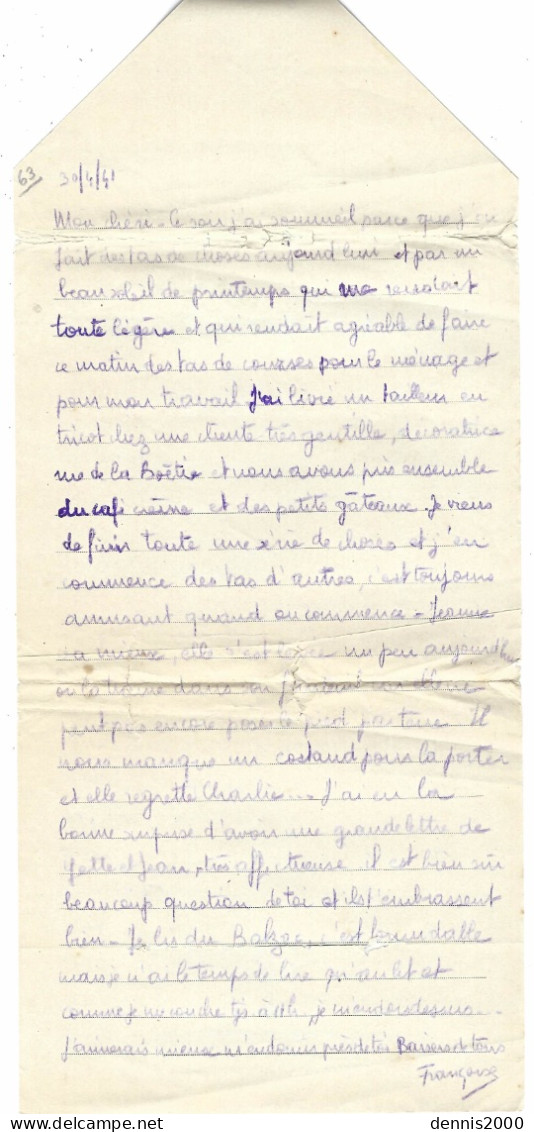 63
30/4/41
Mon chéri - Ce soir j'ai sommeil parce que j'ai
fait des tas de choses aujourd'hui et par un
beau soleil de printemps qui me rendait
toute légère et qui rendait agréable de faire
ce matin des tas de courses pour le ménage et
pour mon travail. J'ai livré un tailleur en
tricot chez une cliente très gentille, décoratrice
rue de la Boëtie et nous avons pris ensemble
du café crème et des petits gâteaux. Je viens
de finir toute une série de choses et j'en
commence des tas d'autres, c'est toujours
amusant quand on commence - Jeanne
va mieux, elle s'est levée un peu aujourd'hui
on la traîne dans son fauteuil car elle ne
peut pas encore poser le pied par terre. Il
nous manque un costaud pour la porter
et elle regrette Charlie... J'ai eu la
bonne surprise d'avoir une grande lettre de
Yette et Jean, très affectueuse il est bien sûr
beaucoup question de toi et ils t'embrassent
bien - Je lis du Balzac, c'est formidable
mais je n'ai le temps de lire qu'au lit et
comme je me couche tjs à 11h, je m'endors dessus...
J'aimerais mieux m'endormir près de toi Baisers de tous
Françoise
dennis2000